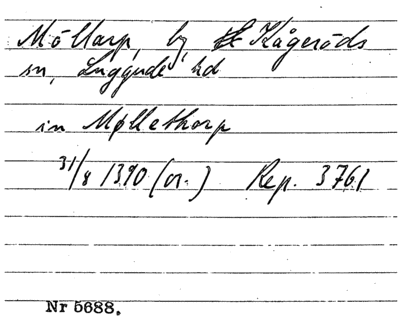 Möllarp, by, Kågeröds
sn, Luggude hd
in Møllethorp
31/8 1390 (or.) Rep. 3761
Nr 5688.